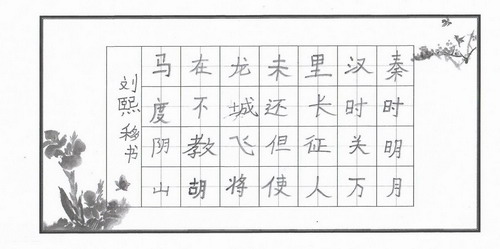 秦时明月
汉时关万
里长征人
未还但使
龙城飞将
在不教胡
马度阴山
刘熙书